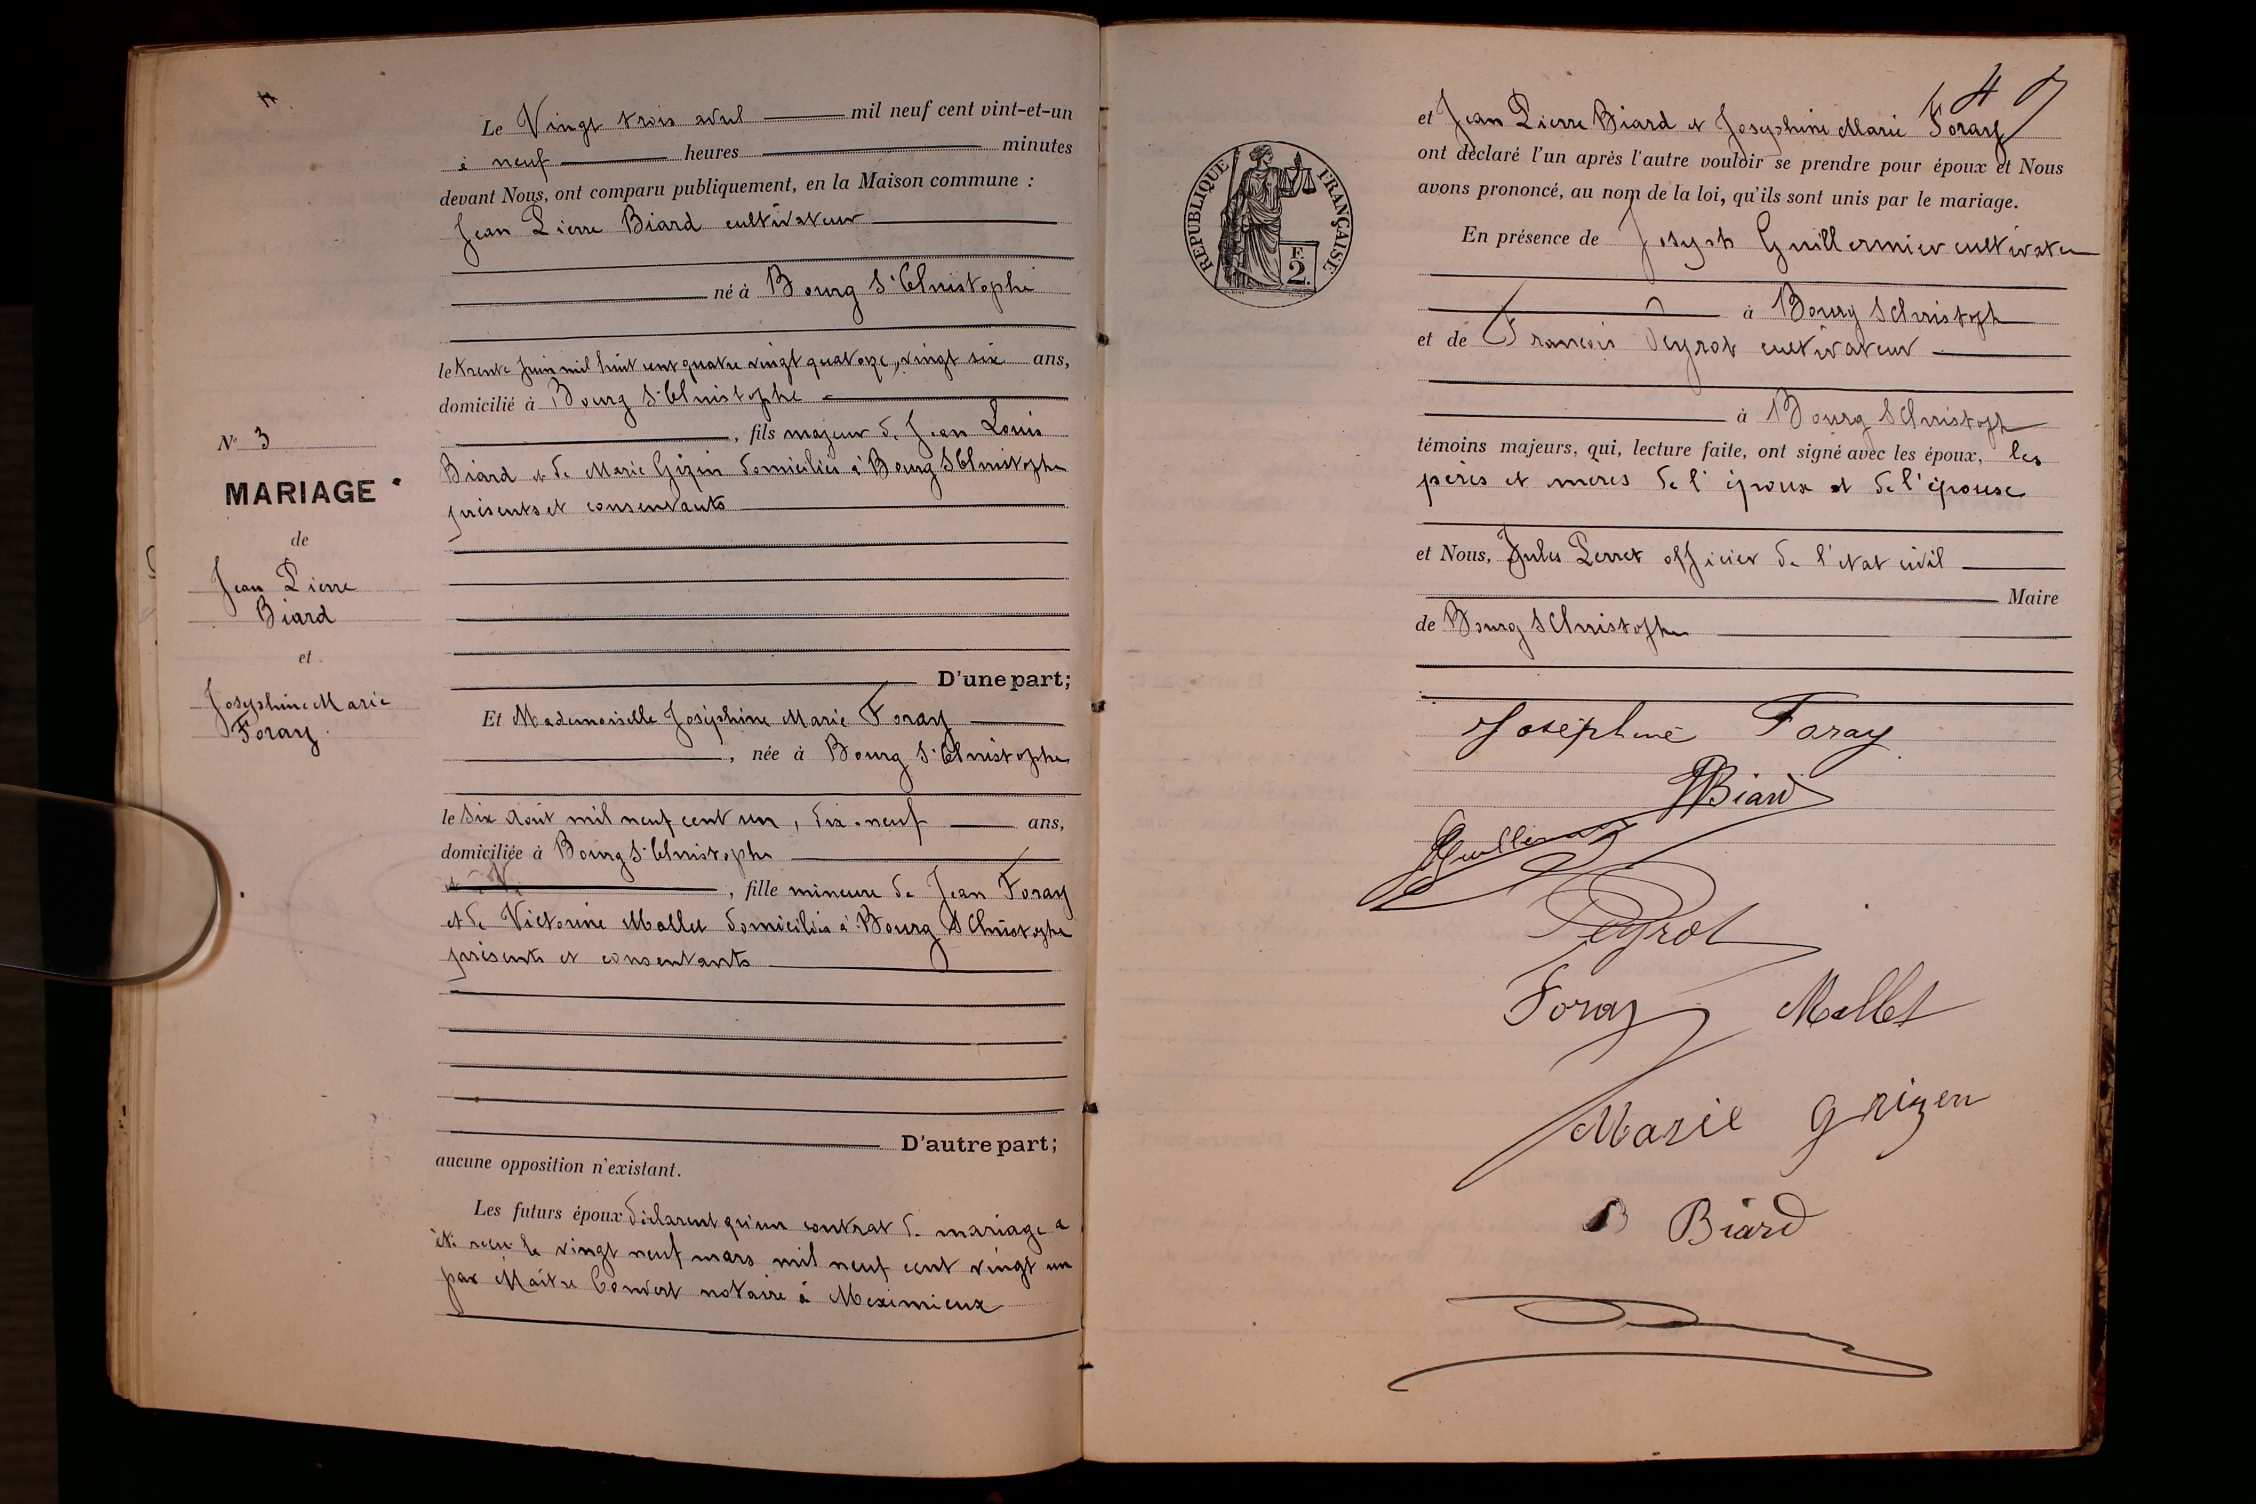 Le Vingt trois avril mil neuf cent vint-et-un
à neuf heures minutes
devant Nous, ont comparu publiquement, en la Maison commune :
Jean Pierre Biard cultivateur
né à Bourg St Christophe
le trente Juin mil huit cent quatre vingt quatorze, vingt six ans,
domicilié à Bourg St Christophe
, fils majeur de Jean Louis
Biard et de Marie Gizin domiciliés à Bourg St Christophe
présents et consentants
D'une part;
Et Mademoiselle Joséphine Marie Foray
, née à Bourg St Christophe
le Six Août mil neuf cent un, dix-neuf ans,
domiciliée à Bourg St Christophe
, fille mineure de Jean Foray
et de Victorine Mallet domiciliés à Bourg St Christophe
présents et consentants
D'autre part;
aucune opposition n'existant.
Les futurs époux déclarent qu'un contrat de mariage a
été recu le vingt neuf mars mil neuf cent vingt un
par Maître Convert notaire à Meximieux
No 3
MARIAGE
de
Jean Pierre
Biard
et
Joséphine Marie
Foray
4
RÉPUBLIQUE FRANÇAISE
F.
2.
et Jean Pierre Biard et Josephine Marie Foray
ont déclaré l'un après l'autre vouloir se prendre pour époux et Nous
avons prononcé, au nom de la loi, qu'ils sont unis par le mariage.
En présence de Joseph Guillermier cultivateur
à Bourg S Christoph
et de François Peyrot cultivateur
à Bourg S Christoph
témoins majeurs, qui, lecture faite, ont signé avec les époux, les
pères et mères de l'époux et de l'épouse
et Nous, Jules Perret officier de l'etat civil
Maire
de Bourg S Christophe
Joséphine Foray
Biard
Guillermier
Peyrot
Foray Mallet
Marie Grizen
B Biard